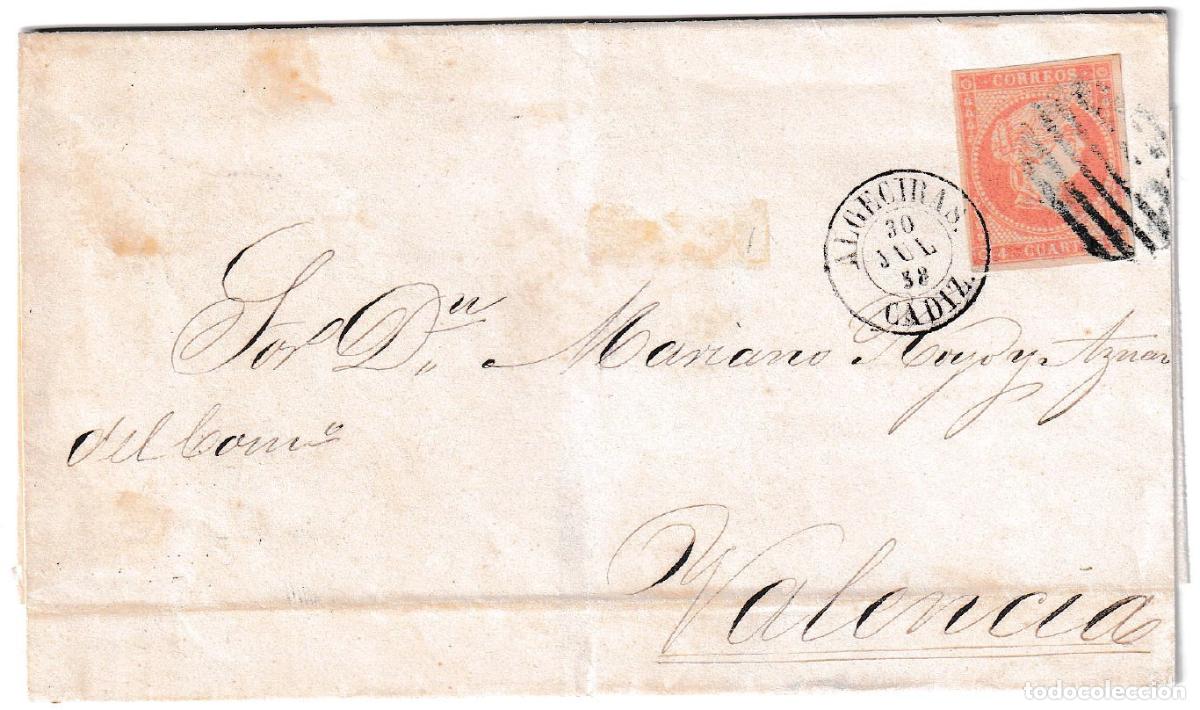 CORREOS
4 CUART
ALGECIRAS.
30
JUL
58
CADIZ.
Sor Dn Mariano Royo y Aznar
del Como
Valencia
todocoleccion